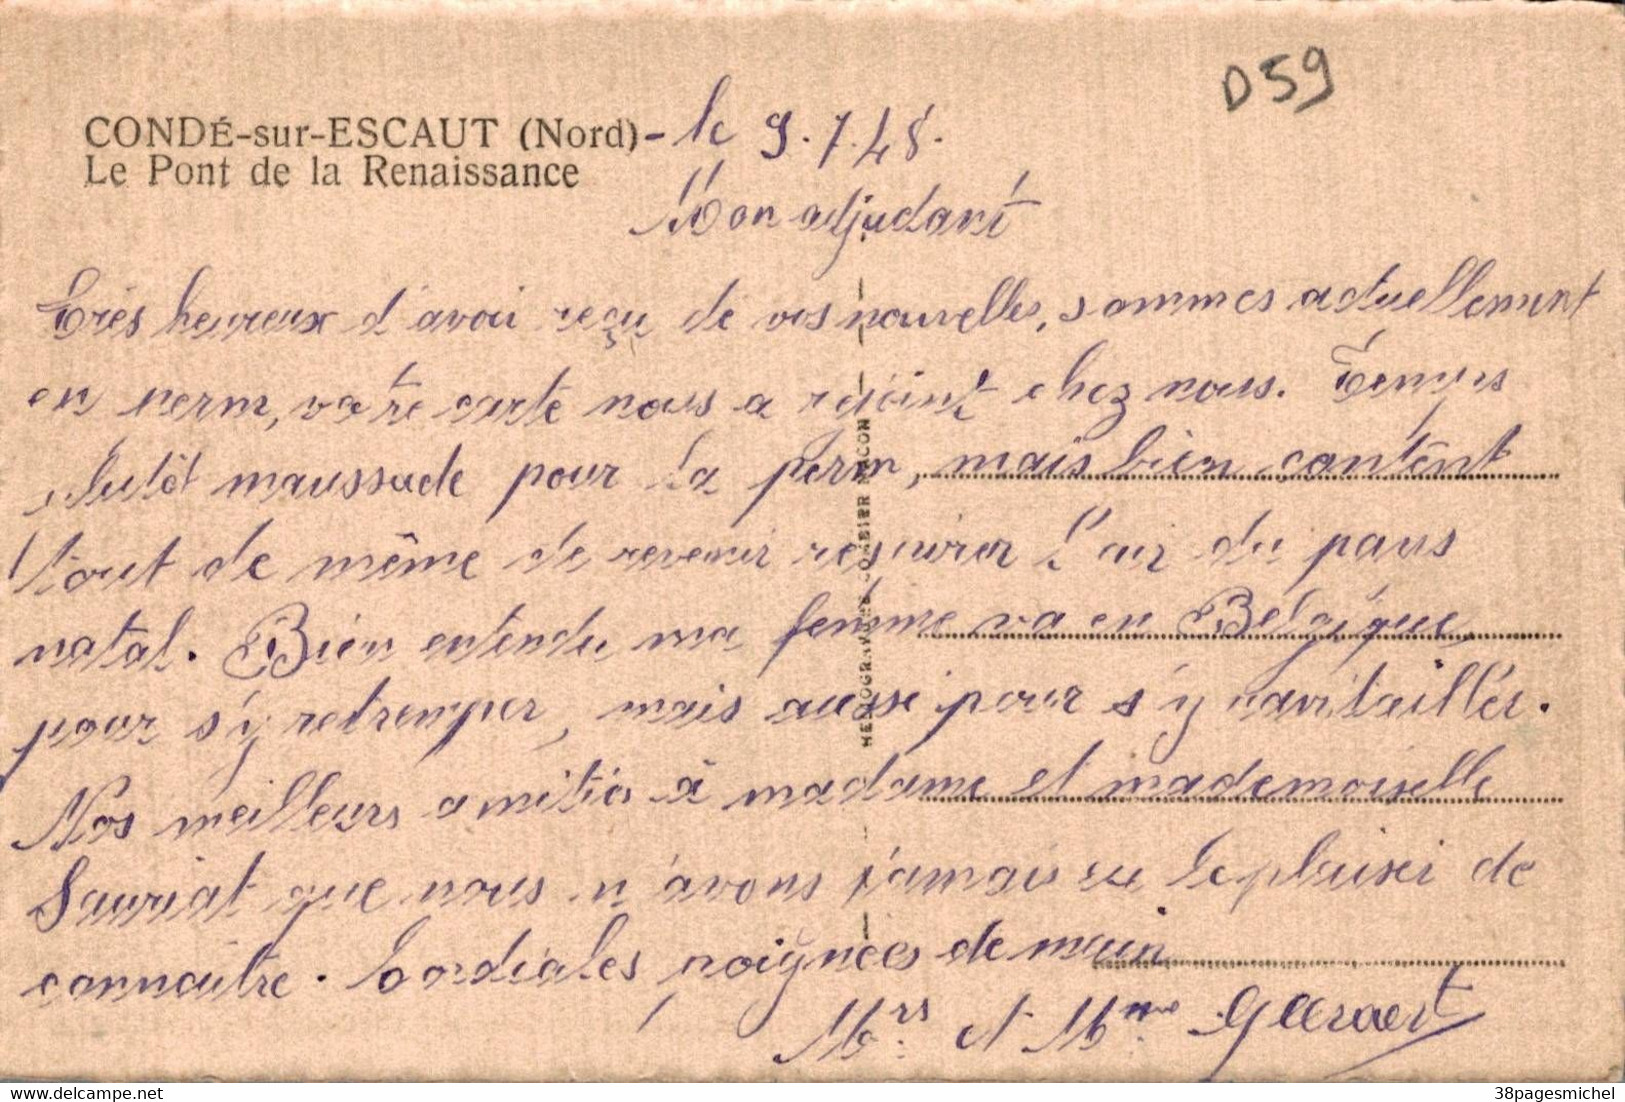 D59
CONDÉ-sur-ESCAUT (Nord)- le 9.7.48.
Le Pont de la Renaissance
Mon adjudant
Très heureux d'avoir reçu de vos nouvelles, sommes actuellement
en perm, votre carte nous a rejoint chez nous. Temps
plutôt maussade pour la perm, mais bien content
tout de même de revenir respirer l'air du pays
natal. Bien entendu ma femme va en Belgique
pour s'y retremper, mais aussi pour s'y ravitailler.
Nos meilleurs amitiés à madame et mademoiselle
Sauriat que nous n'avons jamais eu le plaisir de
connaître. Cordiales poignées de main
Mrs et Mme
HELIOGRAVURE COMBIER MACON
delcampe.net
38pagesmichel